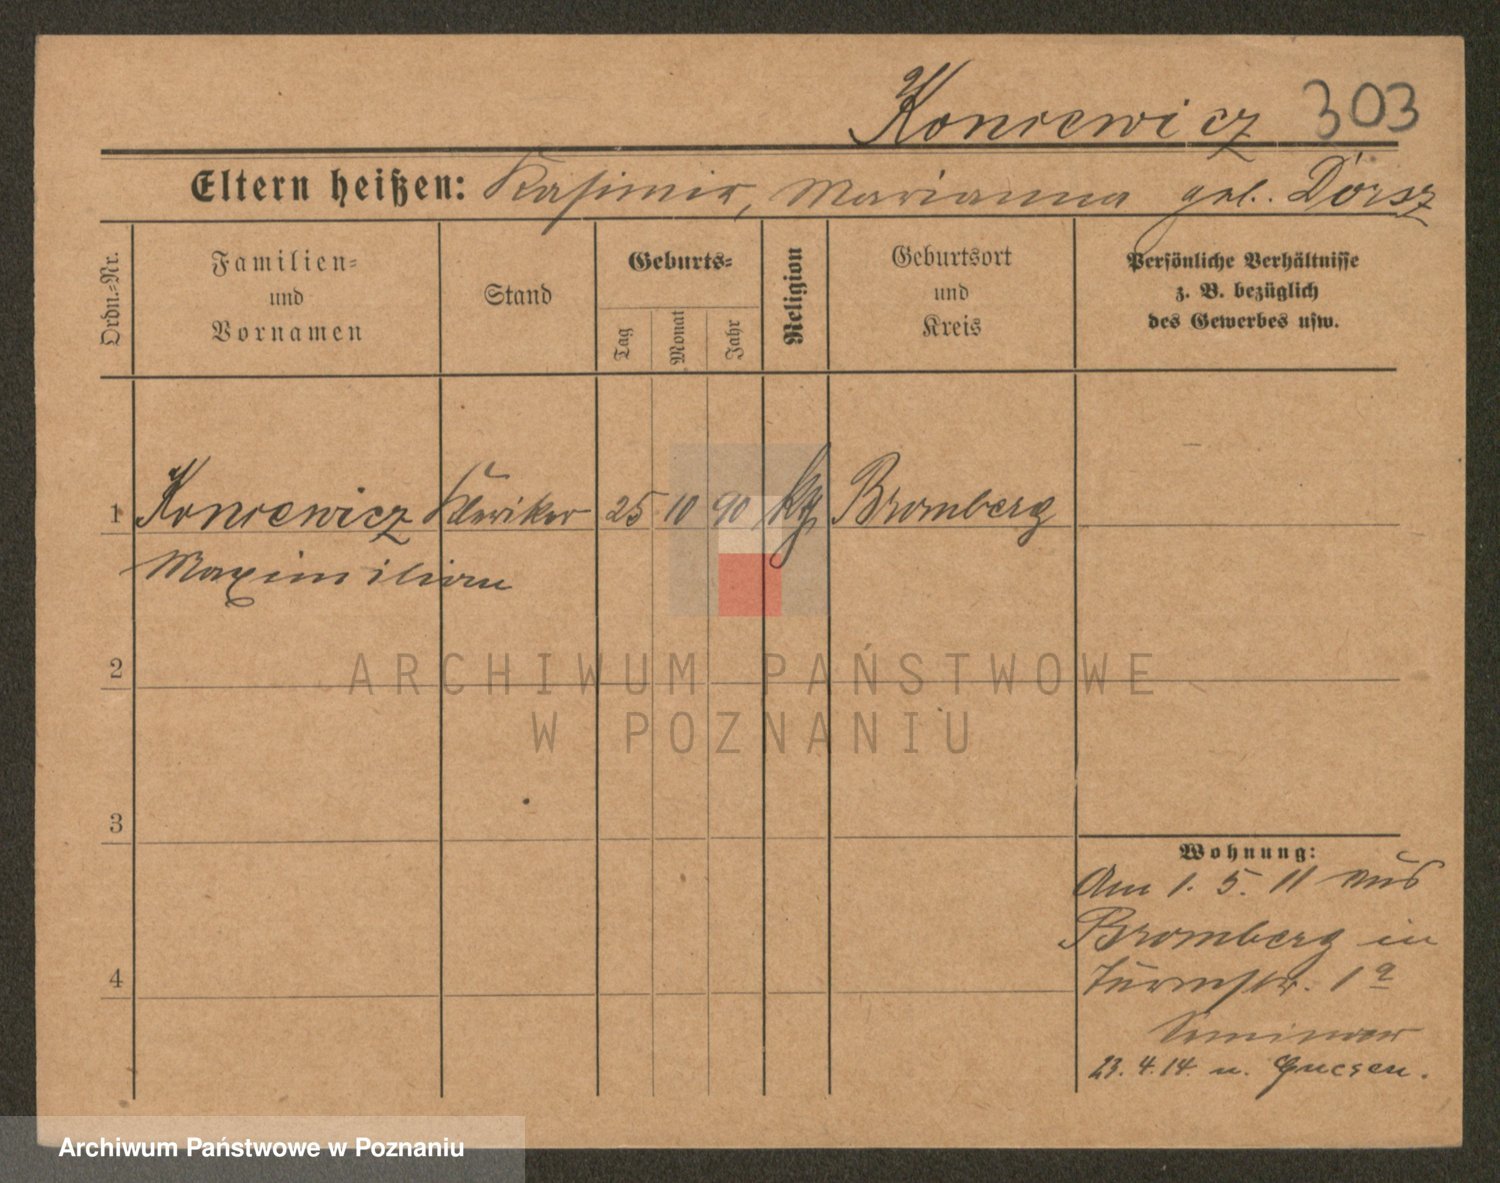 Koniewicz 303
Eltern heißen: Kasimir, Marianna geb. Dorsz
Ordn.-Nr.
Familien-
und
Vornamen
Stand
Geburts-
Tag
Monat
Jahr
Religion
Geburtsort
und
Kreis
Persönliche Verhältnisse
z. B. bezüglich
des Gewerbes usw.
1 Koniewicz Kleriker 25 10 90 kg Bromberg
Maximilian
2
ARCHIWUM PAŃSTWOWE
W POZNANIU
3
Wohnung:
Am 1. 5. 11 aus
Bromberg in
Turmstr. 1a
4
Seminar
23. 4. 14. n. Gnesen.
Archiwum Państwowe w Poznaniu